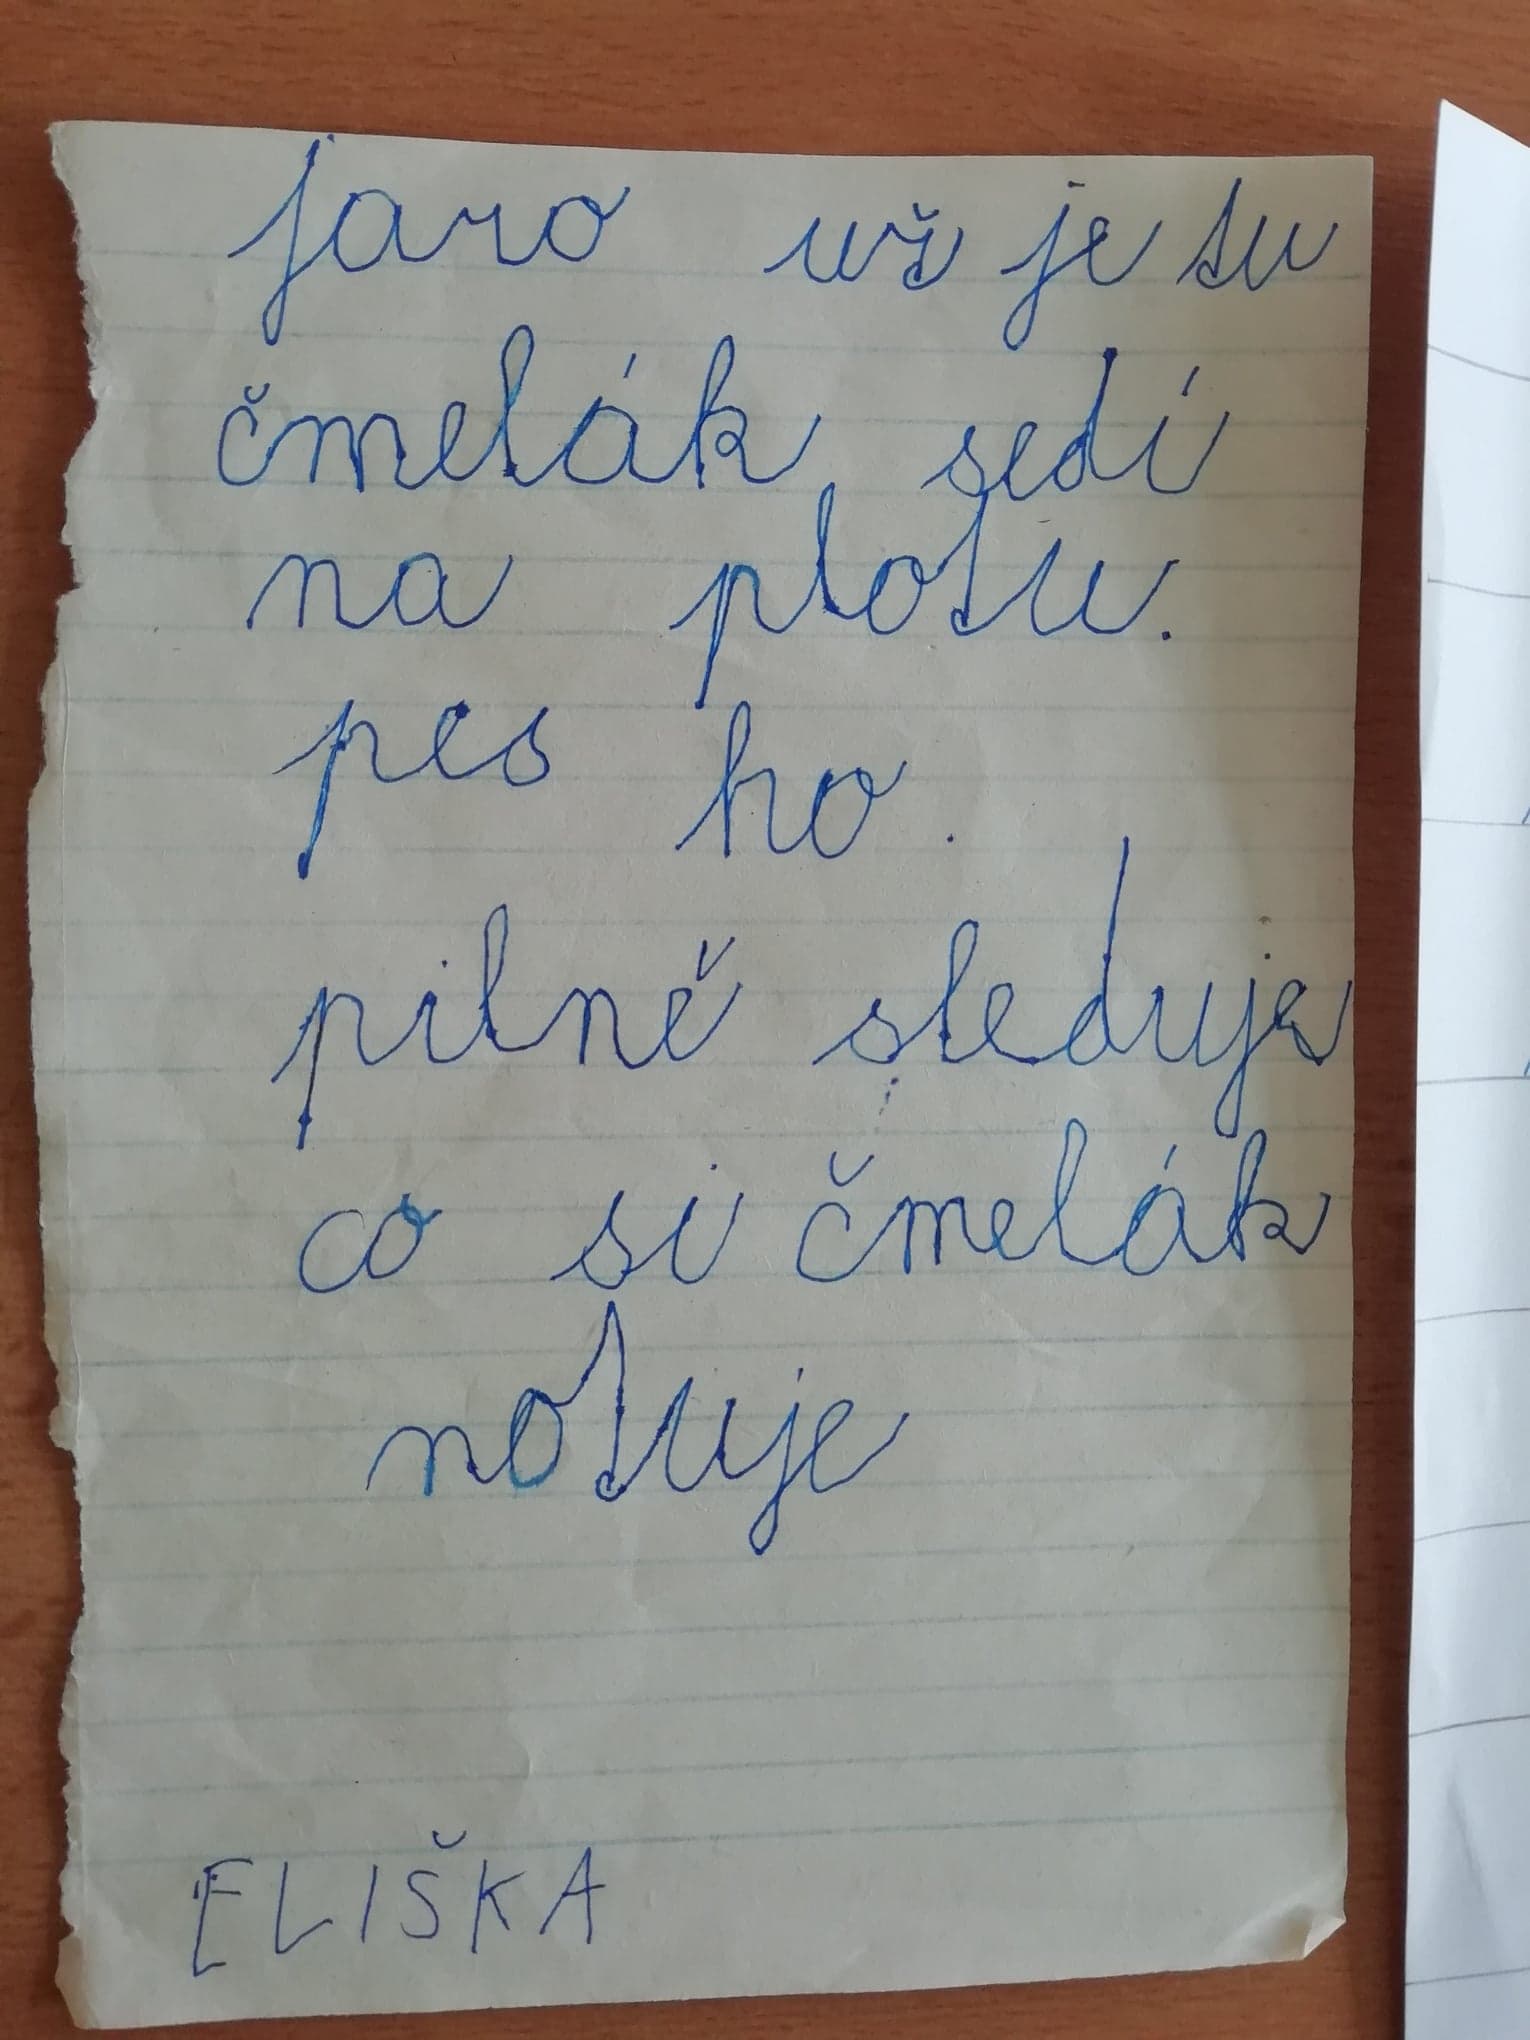 jaro už je tu
čmelák sedí
na plotu.
pes ho.
pilně sleduje
co si čmelák
notuje
ELIŠKA